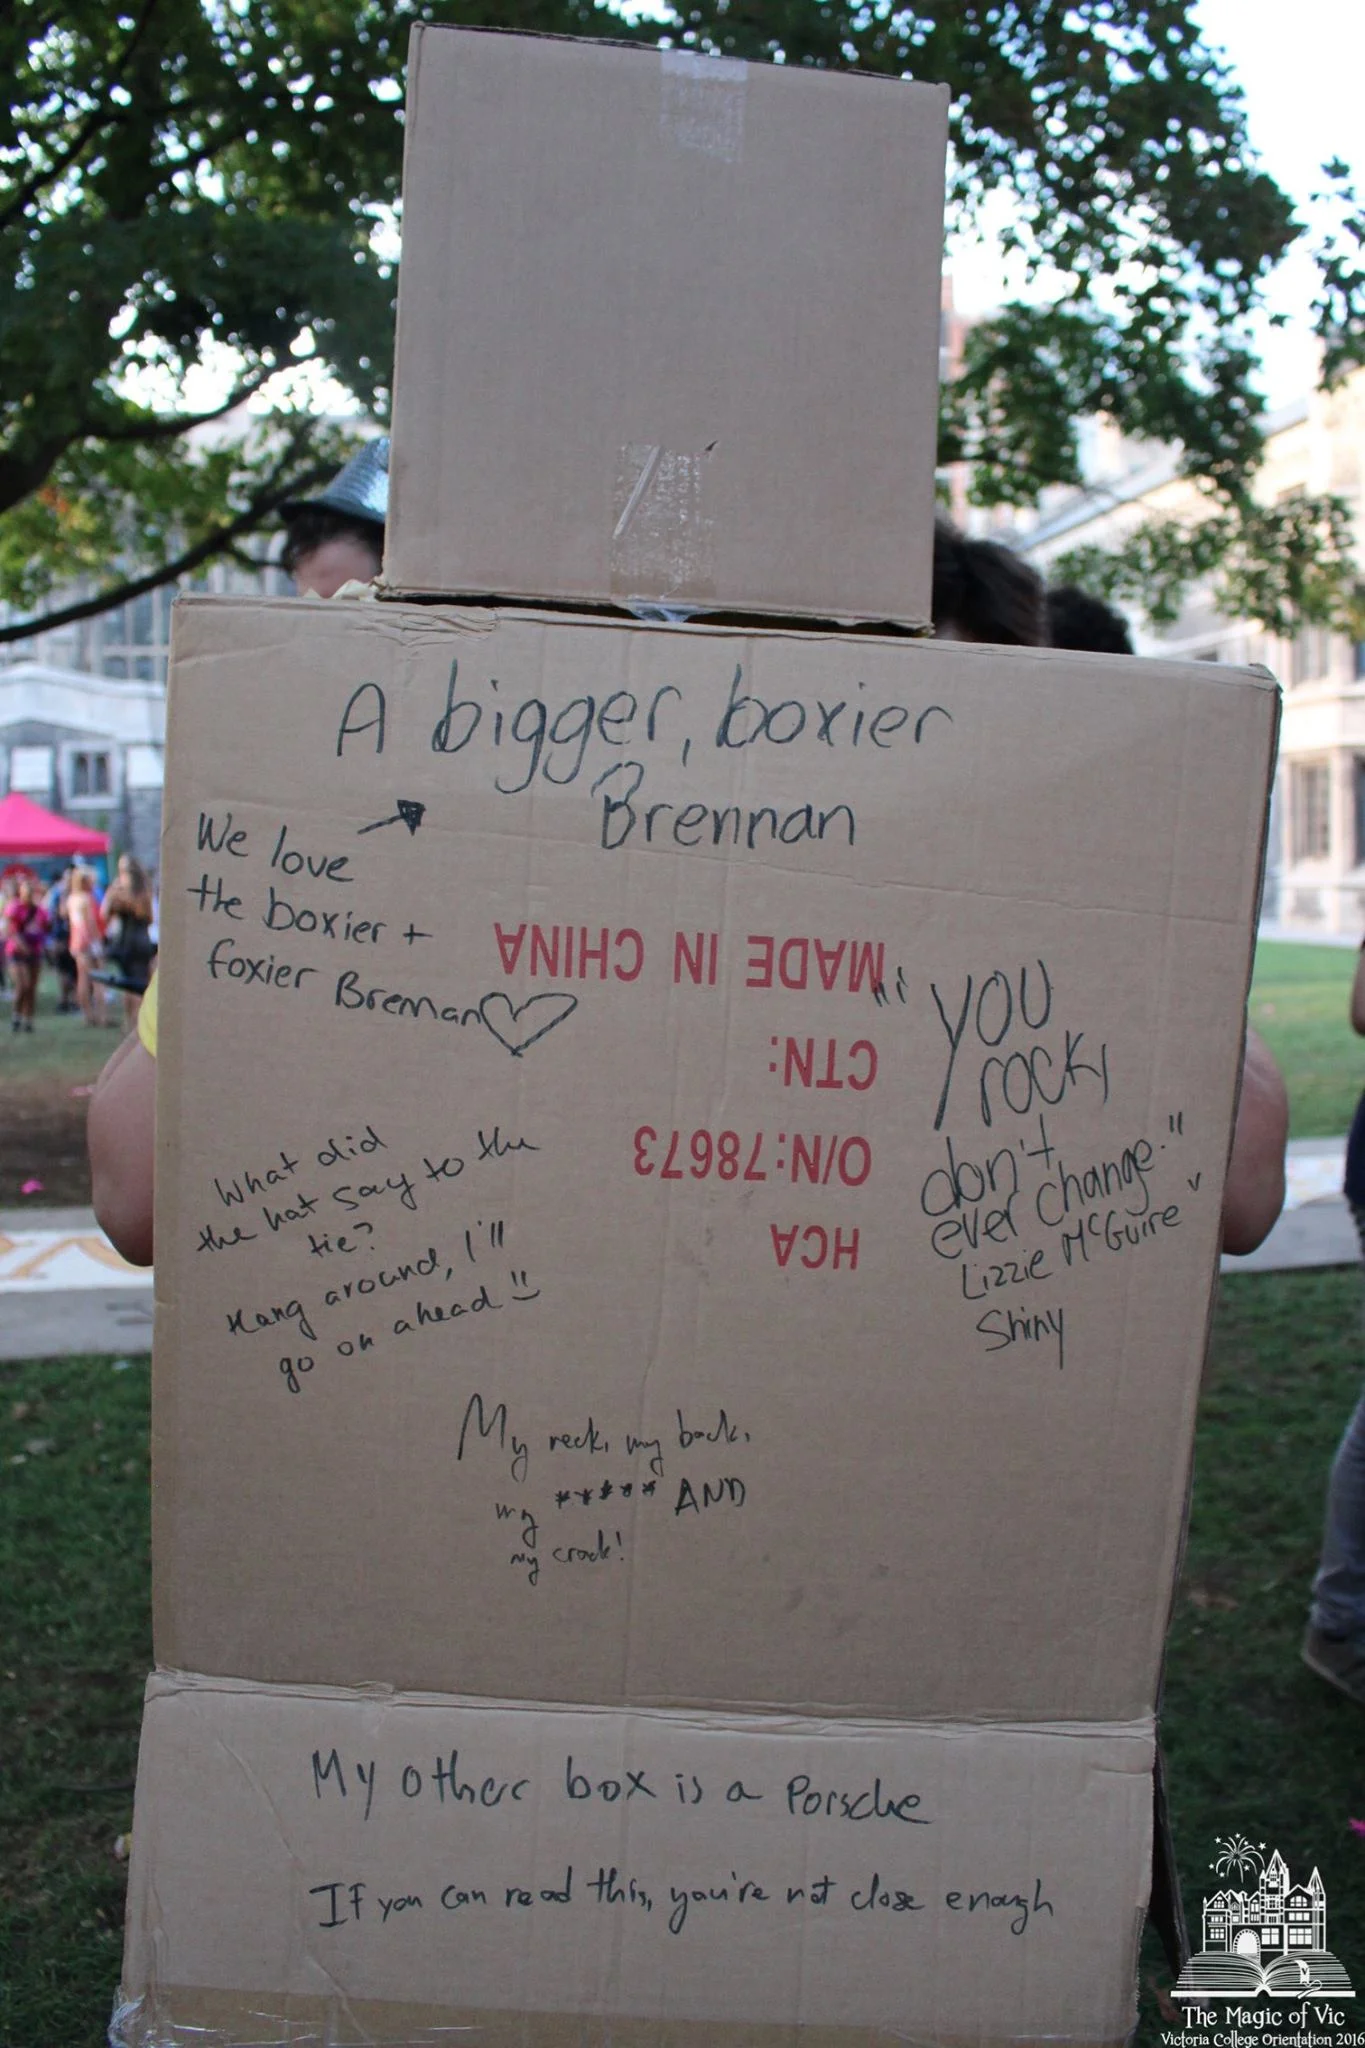 A bigger, boxier
Brennan
We love
the boxier +
foxier Brennan
MADE IN CHINA
CTN:
O/N:78673
HCA
"YOU
rock,
don't
ever change."
Lizzie McGuire
Shiny
What did
the hat say to the
tie?
Hang around, I'll
go on ahead
My neck, my back,
my ***** AND
my crack!
My other box is a Porsche
If you can read this, you're not close enough
The Magic of Vic
Victoria College Orientation 2016